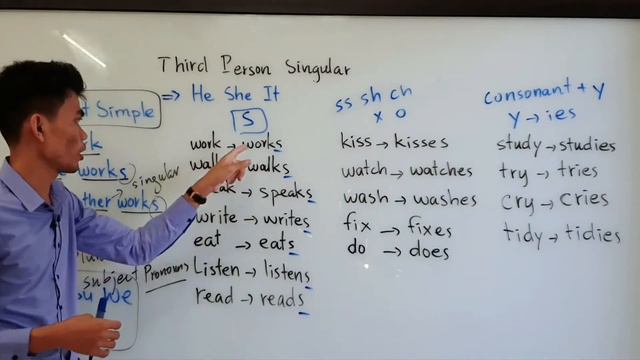 Third Person Singular
t Simple
⇒ He She It
S
works
singular
other works
subject Pronouns
we
work → works
walks
→ speaks
write → writes
eat → eats
Listen → listens
read → reads
ss sh ch
x o
kiss → kisses
watch → watches
wash → washes
fix → fixes
do → does
consonant + y
y → ies
study → studies
try → tries
cry → cries
tidy → tidies